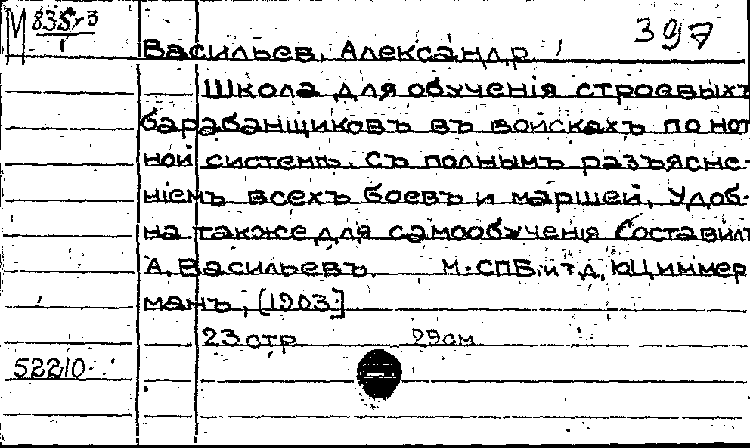 М 835/3 397
1
Васильев, Александр
Школа для обученія строевыхъ
барабанщиковъ въ войскахъ по нот
ной системѣ. Съ полнымъ разъясне-
ніемъ всехъ боевъ и маршей. Удоб-
на также для самообученія Составилъ
А. Васильевъ. М. СПБ. и т д, Ю Циммер
манъ, [1903.]
23 стр 29 см
52210